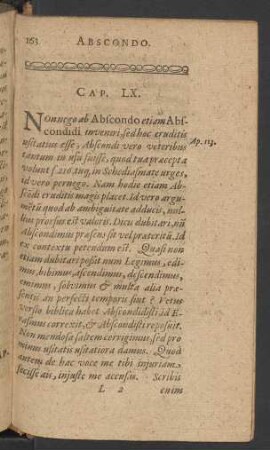 163
ABSCONDO.
CAP. LX.
Non nego ab Abscondo etiam Abs-
condidi inveniri, sed hoc eruditis
usitatius esse, Abscondi vero veteribus
tantum in usu fuisse, quod tua præcepta
volunt f. 216. tug, in Schediasmate urges,
id vero pernego. Nam hodie etiam Ab-
scōdi eruditis magis placet. Id vero argu-
mētū quod ab ambiguitate adducis, nul-
lius prorsus est valoris. Dicis dubitari, nū
Abscondimus præsens sit vel præteritū. Id
ex contextu petendum est. Quasi non
etiam dubitari possit num Legimus, edi-
mus, bibimus, ascendimus, descendimus,
emimus, solvimus & multa alia præ-
sentis an perfecti temporis sint? Vetus
versio biblica habet Abscondidisti id E-
rasmus correxit, & Abscondisti reposuit.
Non mendosa saltem corrigimus, sed pro
minus usitatis usitatiora damus. Quod
autem de hac voce me tibi injuriam
fecisse ais, injuste me accusas. Scribis
L 2 enim
Ap. 113.